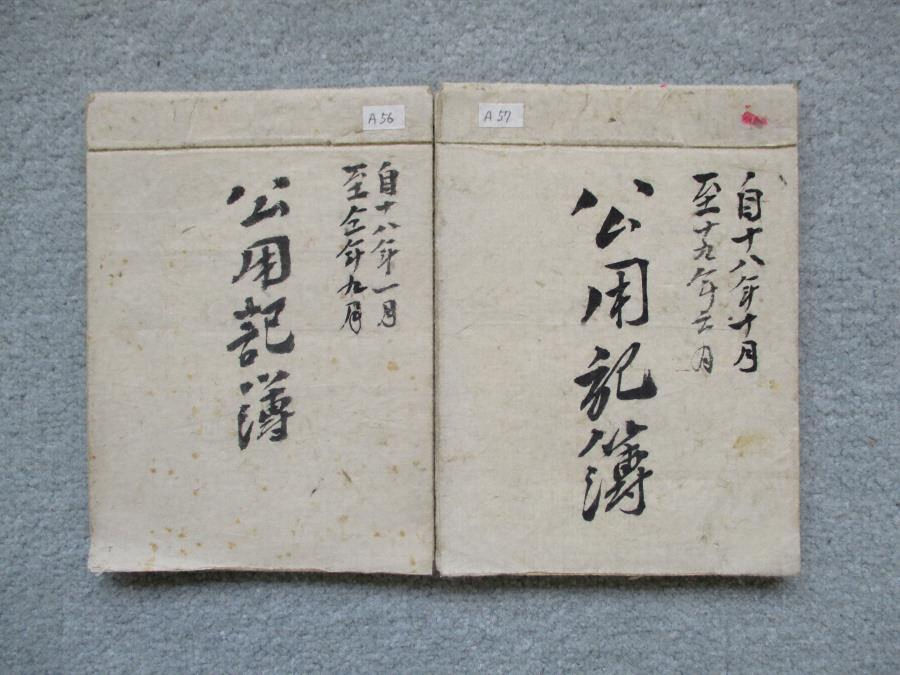 A56
自十八年一月
至仝年九月
公用記簿
A57
自十八年十月
至十九年六月
公用記簿